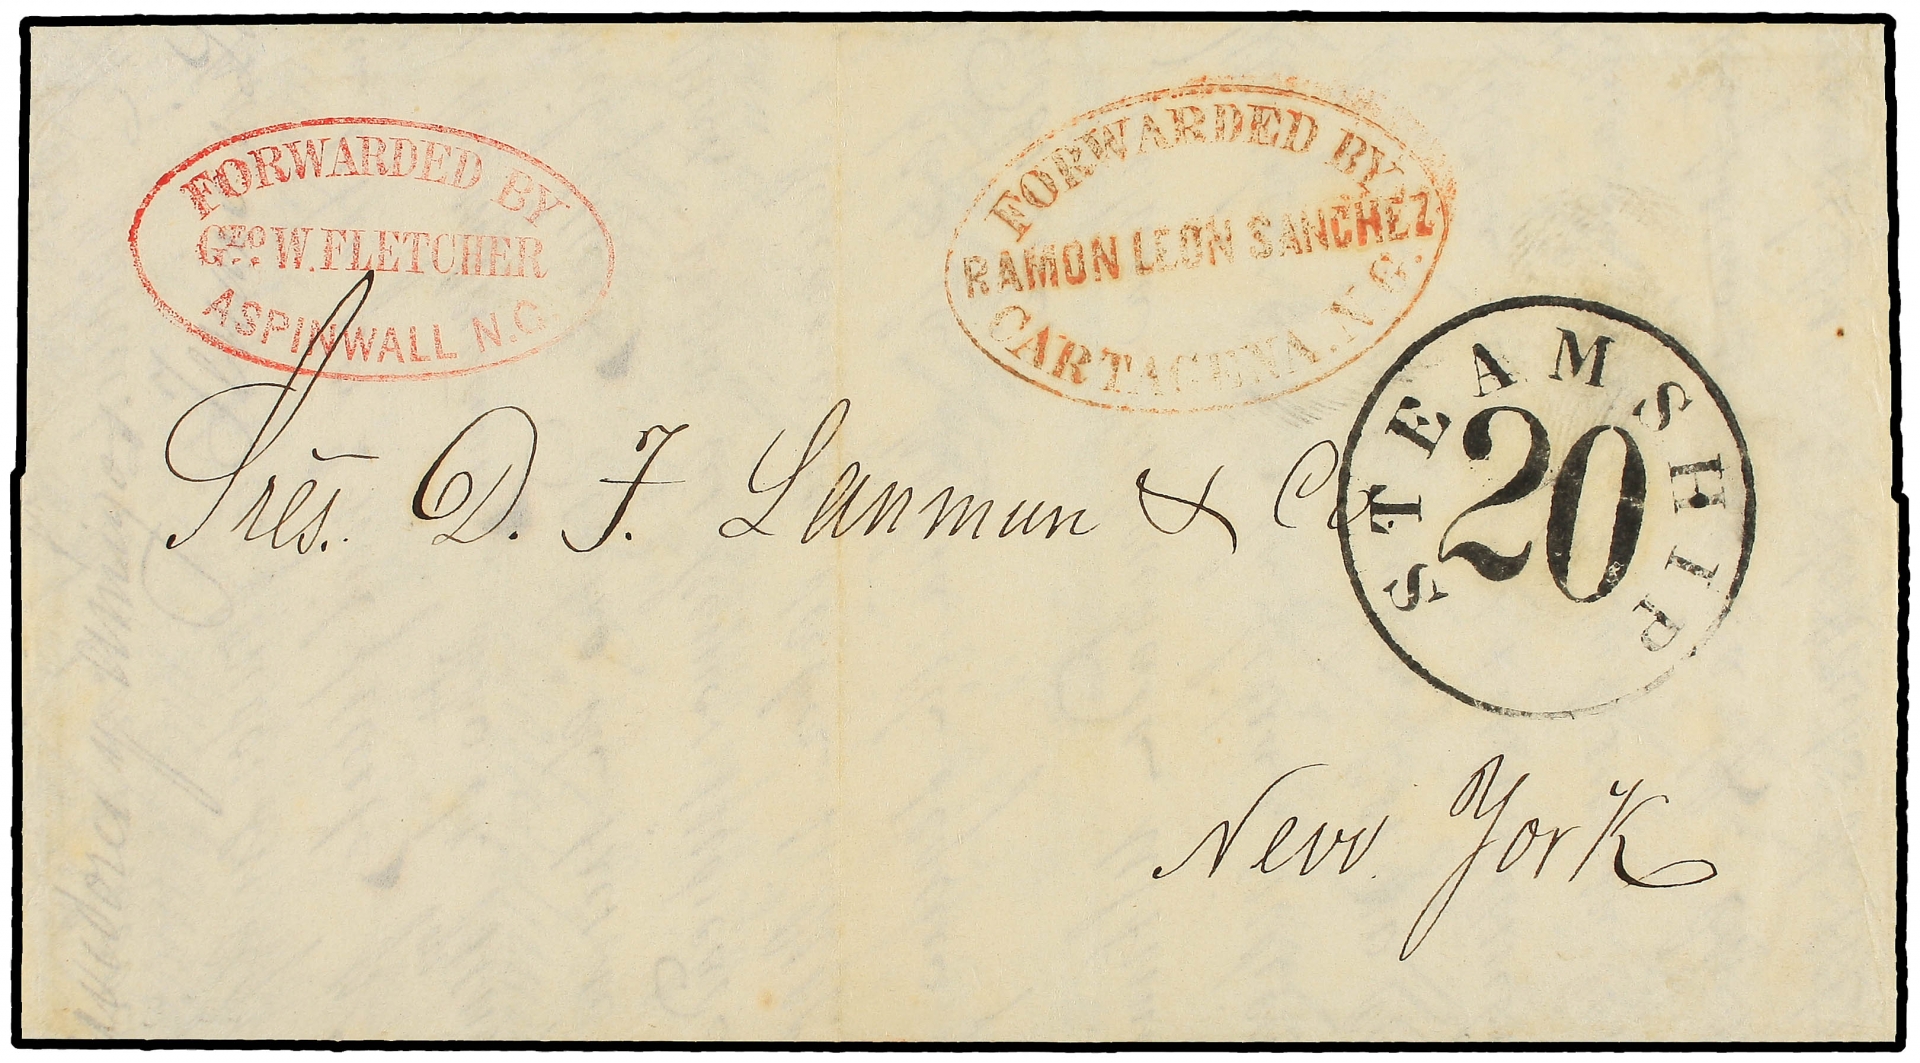 FORWARDED BY
GEO. W. FLETCHER
ASPINWALL N.G.
FORWARDED BY
RAMON LEON SANCHEZ
CARTAGENA. N. G.
STEAMSHIP
20
Sres. D. F. Lanman & Co
New York